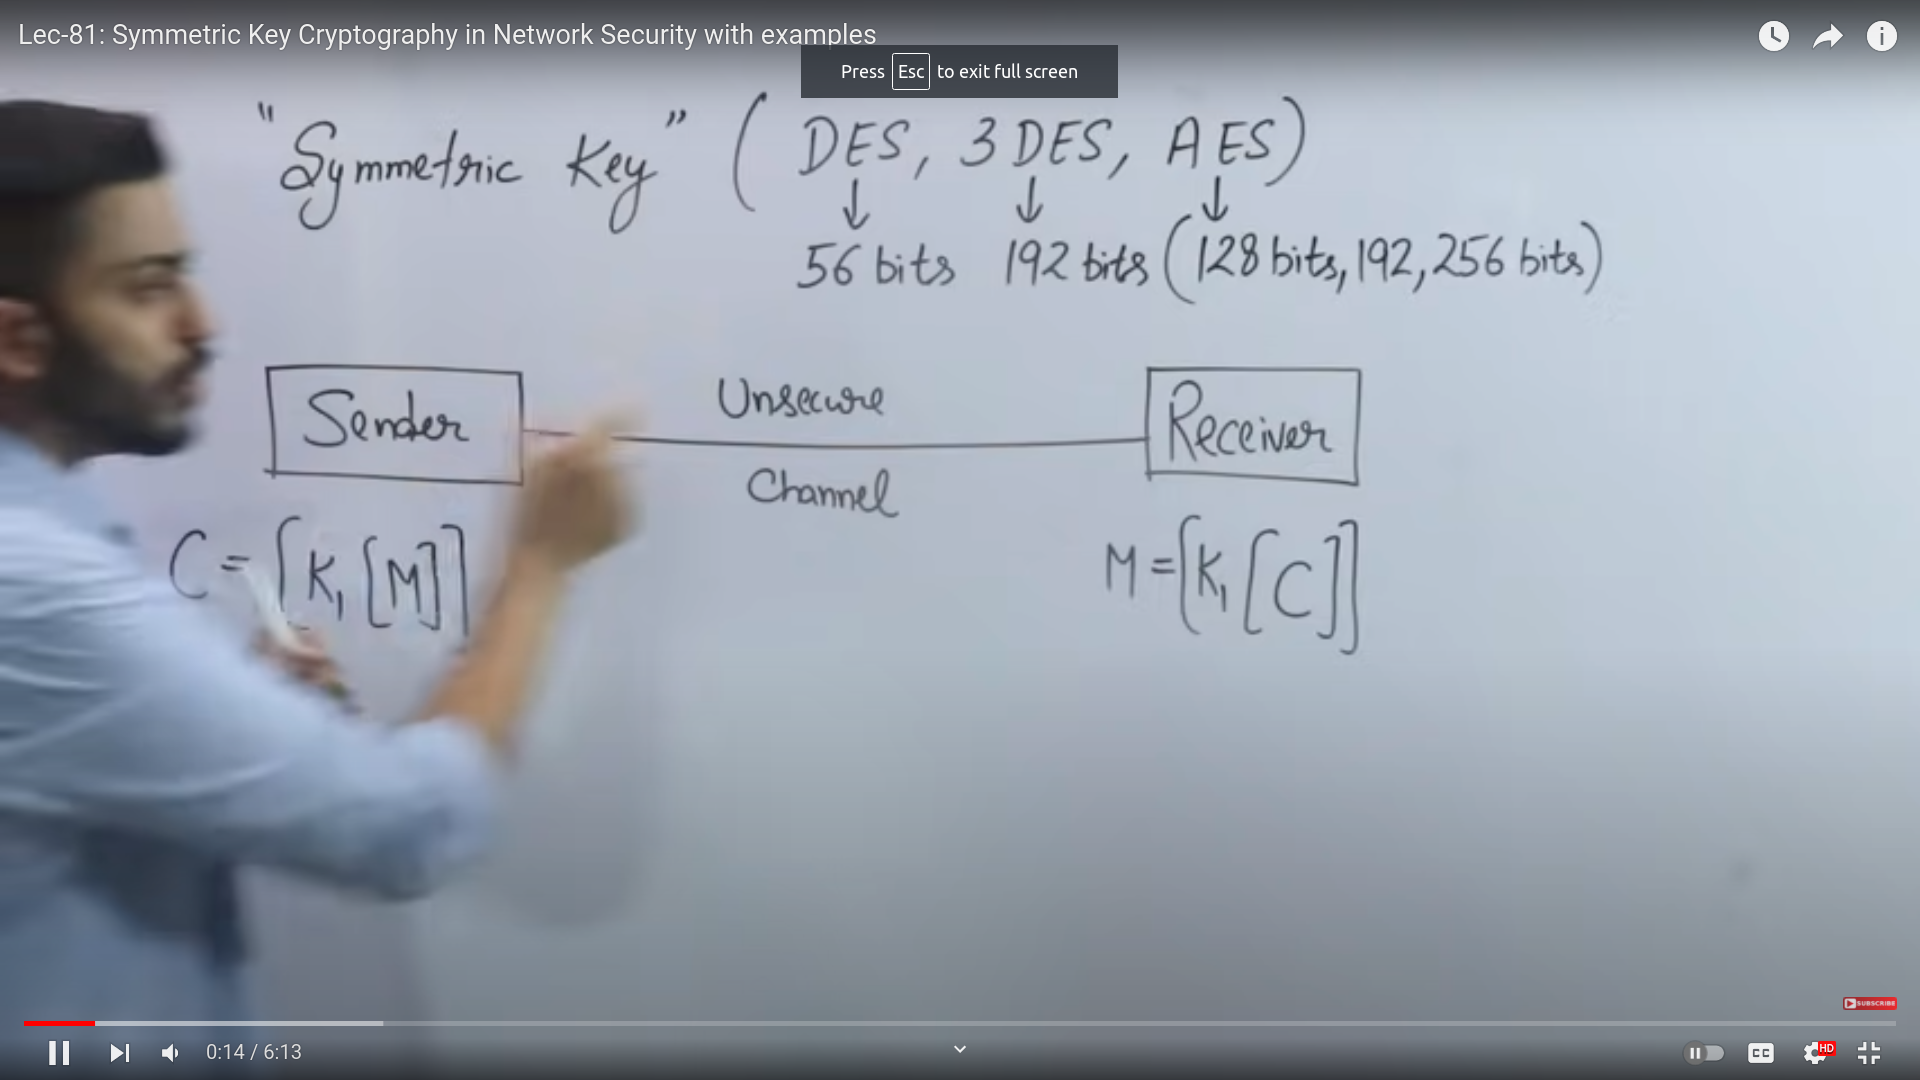 Lec-81: Symmetric Key Cryptography in Network Security with examples
Press Esc to exit full screen
"Symmetric Key" ( DES, 3DES, AES)
↓ ↓ ↓
56 bits 192 bits (128 bits, 192, 256 bits)
Sender Unsecure Receiver
Channel
C = [K₁ [M]] M = [K₁ [C]]
SUBSCRIBE
0:14 / 6:13
CC HD